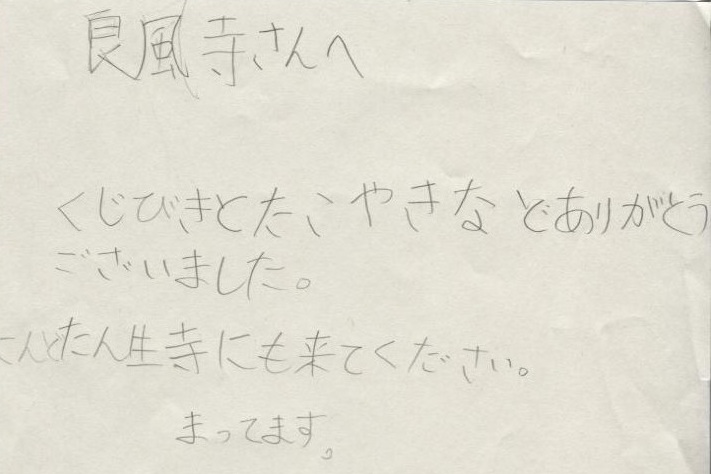 良風寺さんへ
くじびきとたこやきなどありがとう
ございました。
こんどたん生寺にも来てください。
まってます。